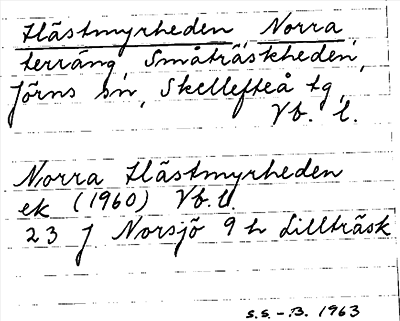 Hästmyrheden, Norra,
terräng, Småträskheden,
Jörns sn, Skellefteå tg,
Vb. l.
Norra Hästmyrheden
ek (1960) Vb.l.
23 J Norsjö 9 h Lillträsk
S.S. - B. 1963